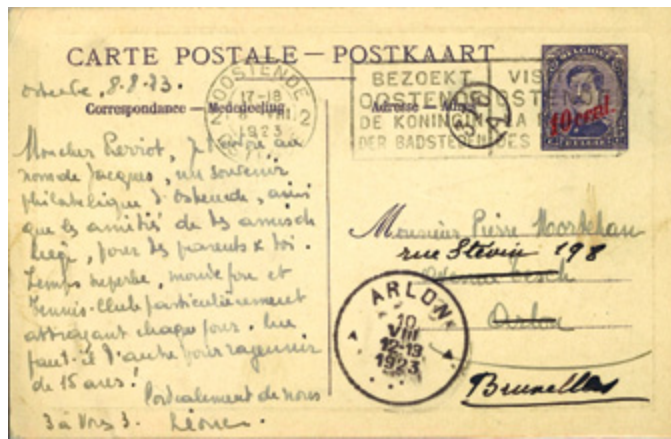 CARTE POSTALE — POSTKAART
BELGIQUE
10 cent.
BELGIE
Ostende, 8.8.23.
OOSTENDE
17-18
8 VIII
1923
2
BEZOEKT
OOSTENDE
DE KONINGIN
DER BADSTEDEN
VIS
OSTEN
LA
DES
Correspondance — Mededeeling
Adresse — Adres
Mon cher Pierrot, j'envoie au
nom de Jacques, un souvenir
philatélique d'Ostende, ainsi
que les amitiés de tes amis de
Liège, pour tes parents & toi.
Temps superbe, monde fou et
Tennis-Club particulièrement
attrayant chaque jour. Que
faut-il d'autre pour rajeunir
de 15 ans!
Cordialement de nous
3 à vous 3.
Monsieur Pierre
rue Stévin 198
Arlon
Bruxelles
ARLON
10
VIII
12-13
1923